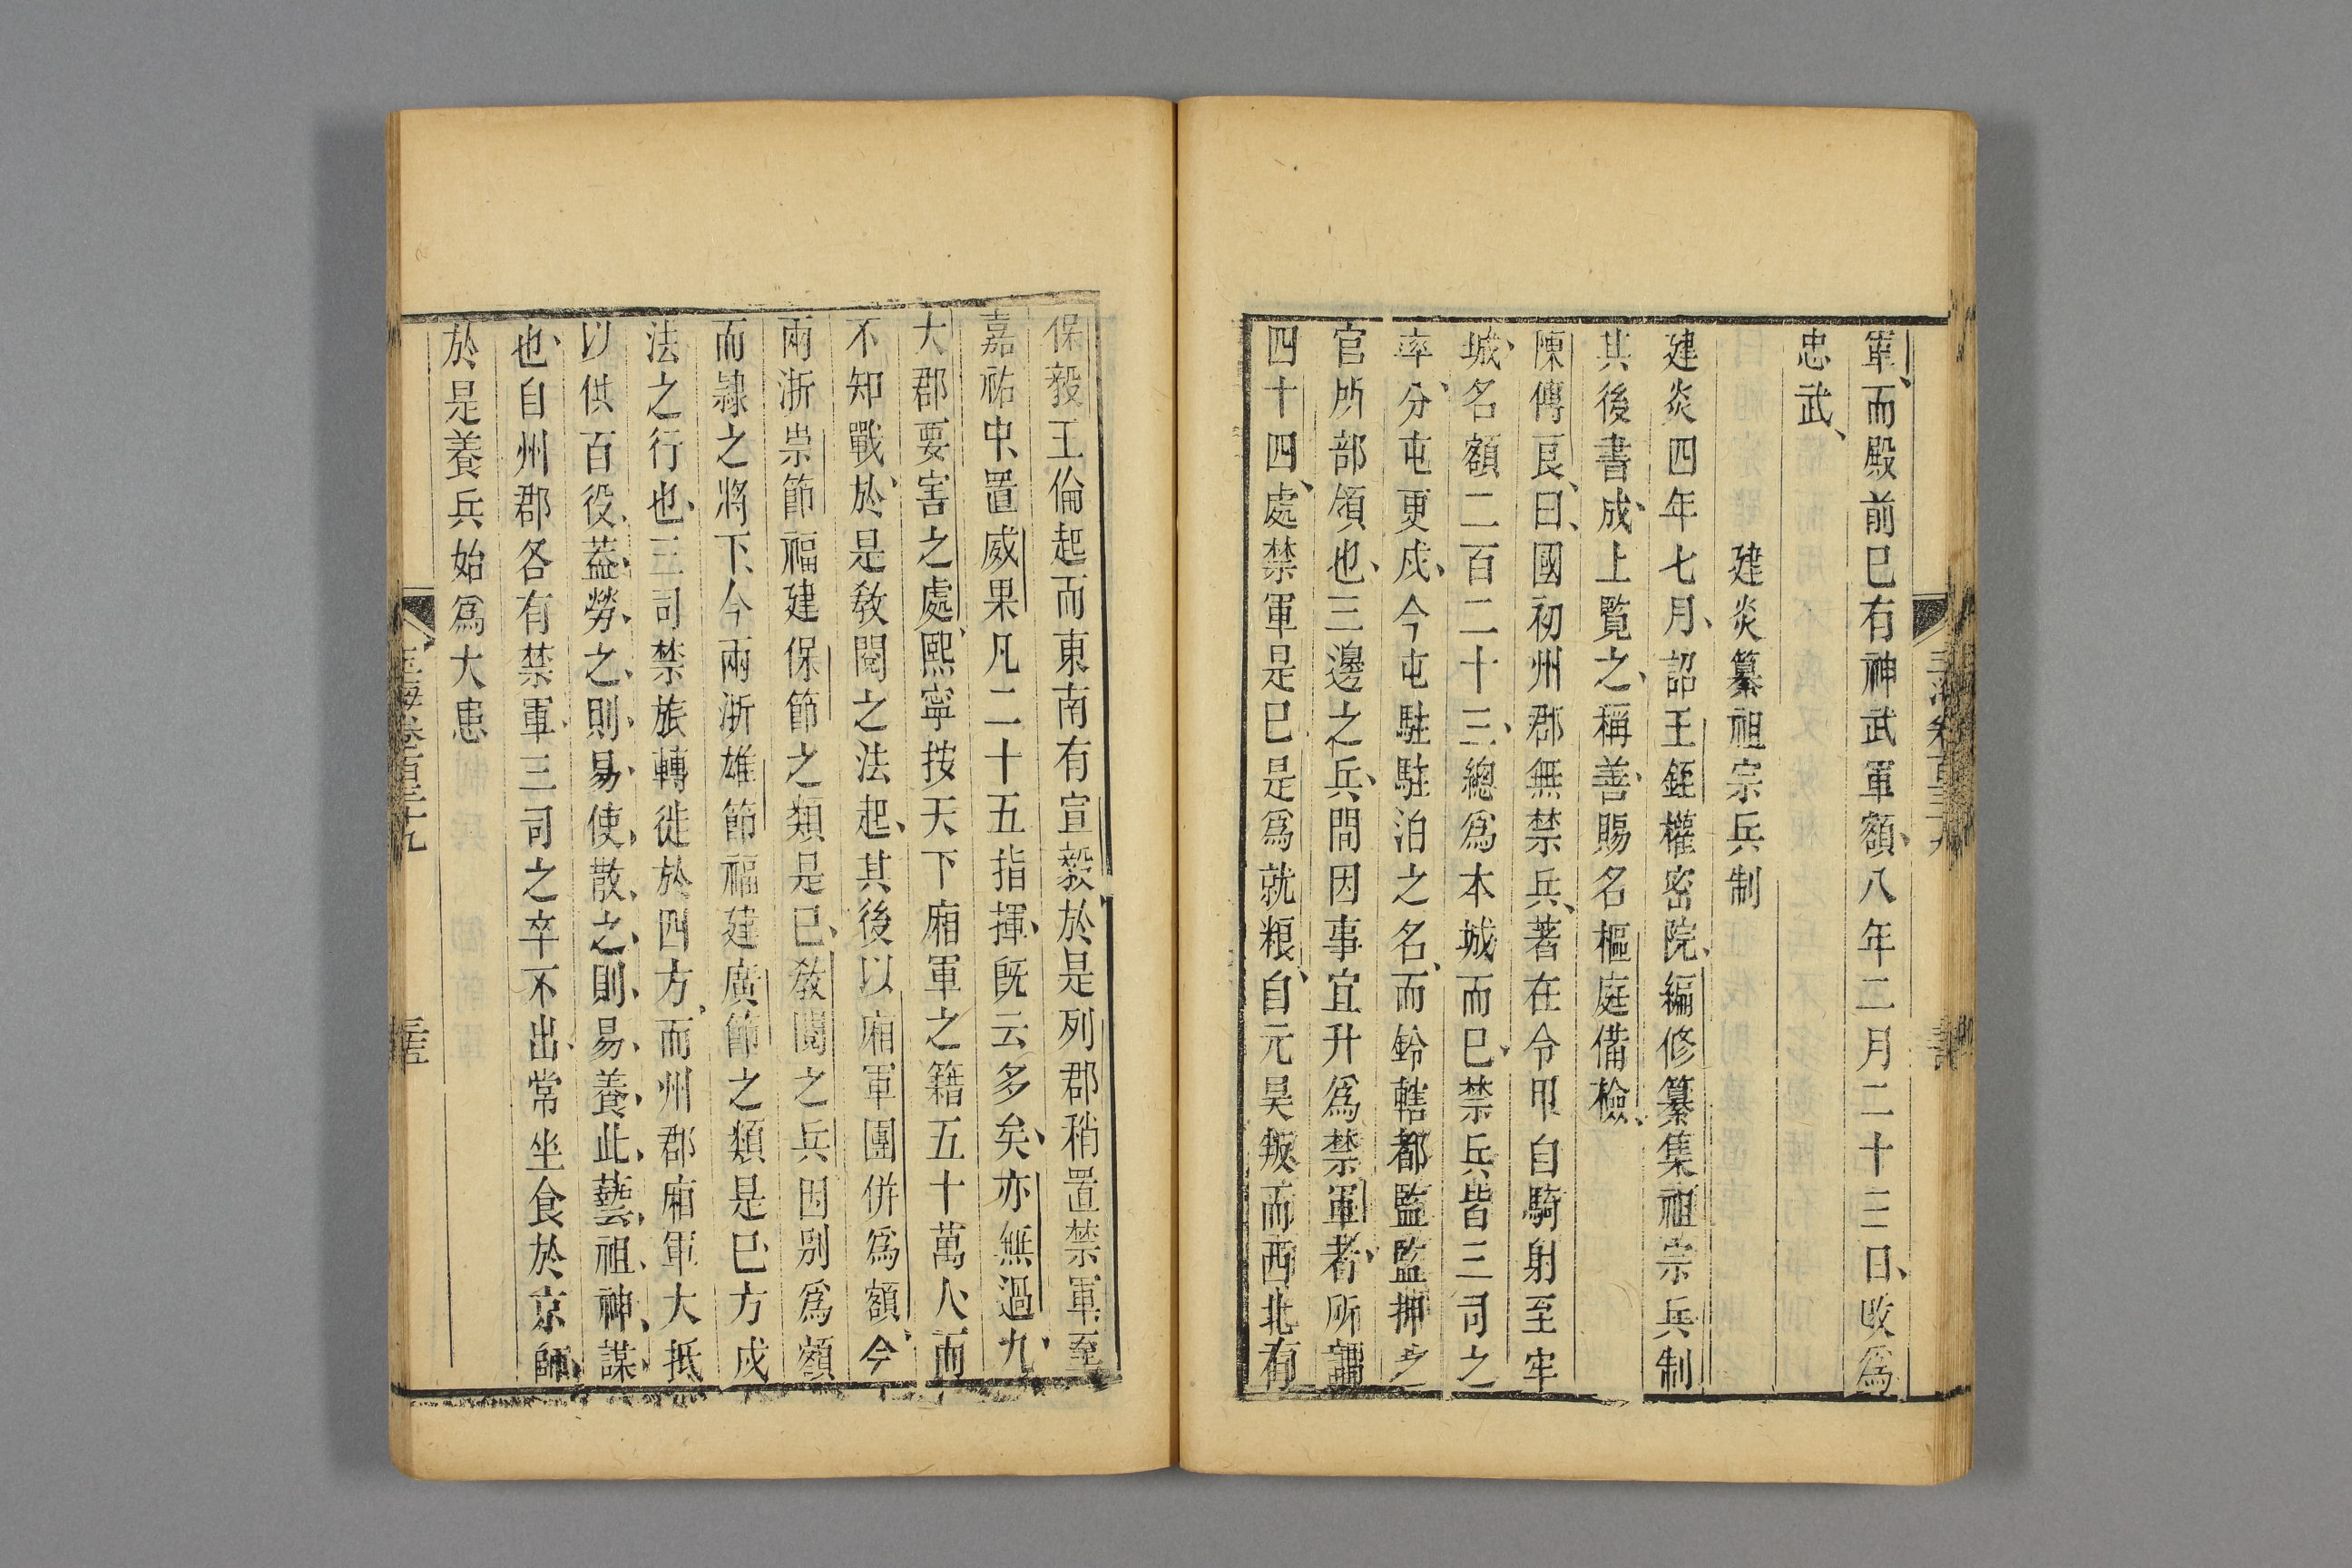 軍而殿前已有神武軍額八年二月二十三日改爲
忠武
建炎纂祖宗兵制
建炎四年七月詔王銍權密院編修纂集祖宗兵制
其後書成上覽之稱善賜名樞庭備檢
陳傅良曰國初州郡無禁兵著在令甲自騎射至牢
城名額二百二十三總爲本城而已禁兵皆三司之
率分屯更戍今屯駐駐泊之名而鈐轄都監監押之
官所部領也三邊之兵間因事宜升爲禁軍者所謂
四十四處禁軍是已是爲就粮自元昊叛而西北有
保毅王倫起而東南有宣毅於是列郡稍置禁軍至
嘉祐中置威果凡二十五指揮旣云多矣亦無過九
大郡要害之處熙寧按天下廂軍之籍五十萬人而
不知戰於是敎閱之法起其後以廂軍團併爲額今
兩浙崇節福建保節之類是已敎閱之兵因别爲額
而隷之將下今兩浙雄節福建廣節之類是已方戍
法之行也三司禁旅轉徙於四方而州郡廂軍大抵
以供百役葢勞之則易使散之則易養此藝祖神謀
也自州郡各有禁軍三司之卒不出常坐食於京師
於是養兵始爲大患
玉海卷百三十九